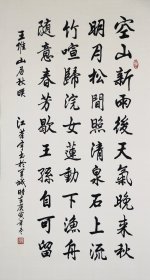 空山新雨後天氣晚来秋
明月松間照清泉石上流
竹喧歸浣女蓮動下漁舟
隨意春芳歇王孫自可留
王維山居秋暝